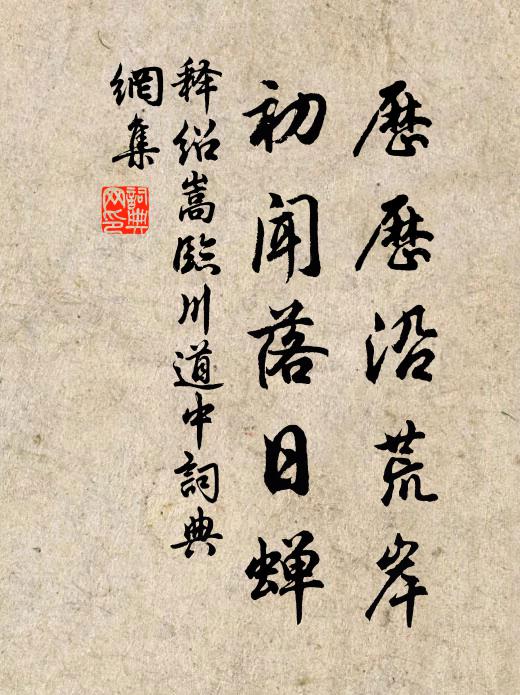 歷歷沿荒岸
初闻落日蝉
释绍嵩臨川道中詞典
網集
詞典
网印